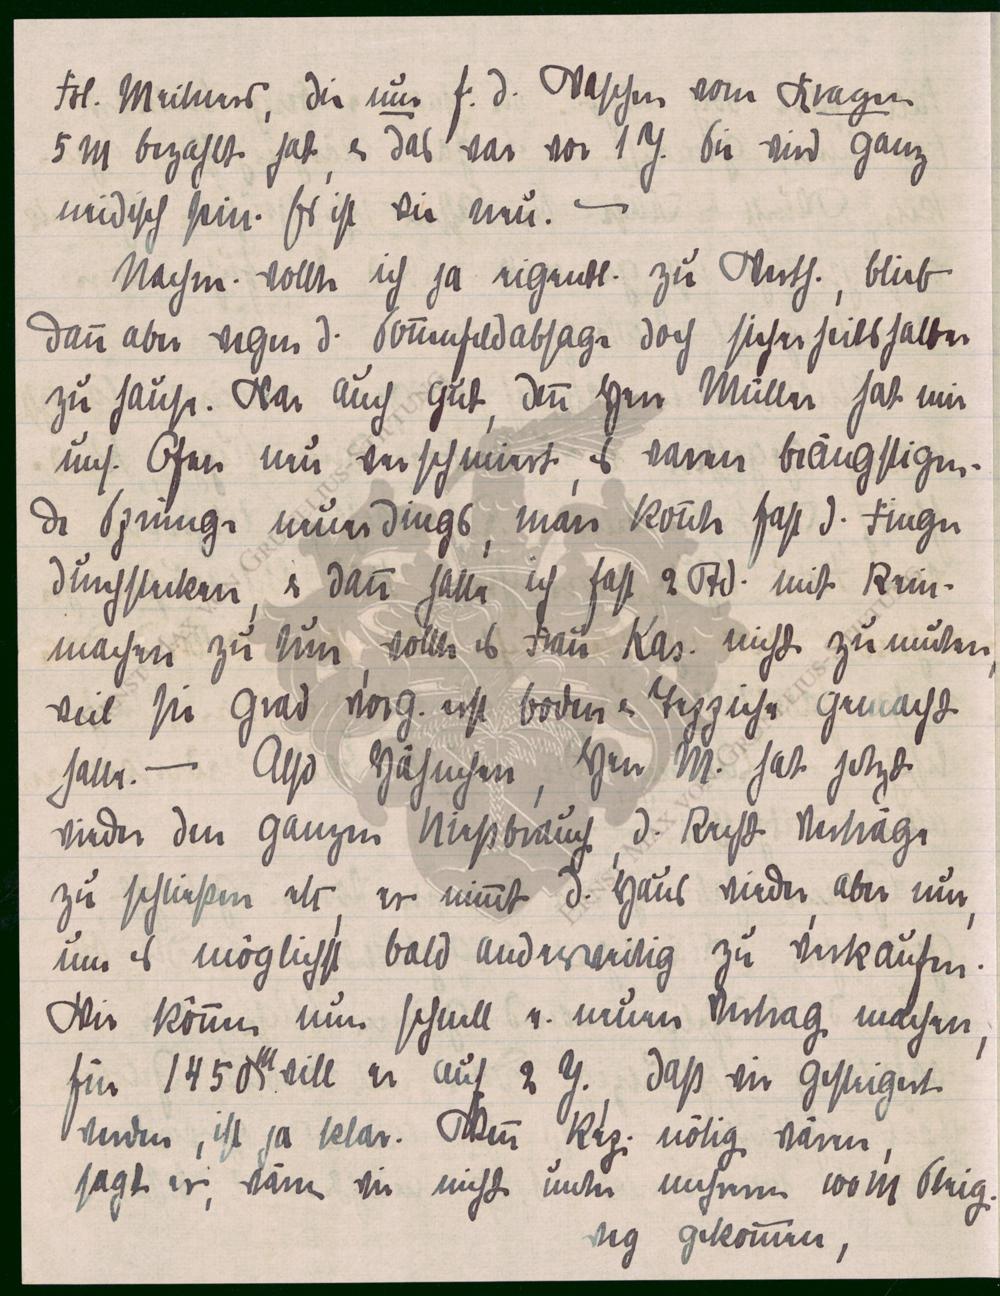 Frl. Meiners, die nur f. d. Waschen vom Kragen
5 M bezahlt hat, u. das war vor 1 J. Sie wird ganz
neidisch sein. Es ist wie neu. —
Nachm. wollte ich ja eigentl. zu Werth., blieb
dañ aber wegen d. Soñenfeldabsage doch sicherheitshalber
zu hause. War auch gut, deñ Herr Müller hat mir
uns. Ofen neu verschmiert, es waren beängstigen-
de Sprünge neuerdings, man koñte fast d. Finger
durchstecken, u. dañ hatte ich fast 2 Std. mit Rein-
machen zu tun, wollte es Frau Kas. nicht zumuten,
weil sie grad vorg. erst boden u. Teppiche gemacht
hatte. — Also Hähnchen, Herr M. hat jetzt
wieder den ganzen Nießbrauch, d. Recht Verträge
zu schließen etc, er nim̃t d. Haus wieder, aber nur,
um es möglichst bald anderweitig zu verkaufen.
Wir köñen nun schnell e. neuen Vertrag machen,
für 1450 M will er auf 2 J., daß wir gesteigert
werden, ist ja klar. Weñ Rep. nötig wären,
sagt er, wären wir nicht unter mehreren 100 M Steig.
weg gekom̃en,